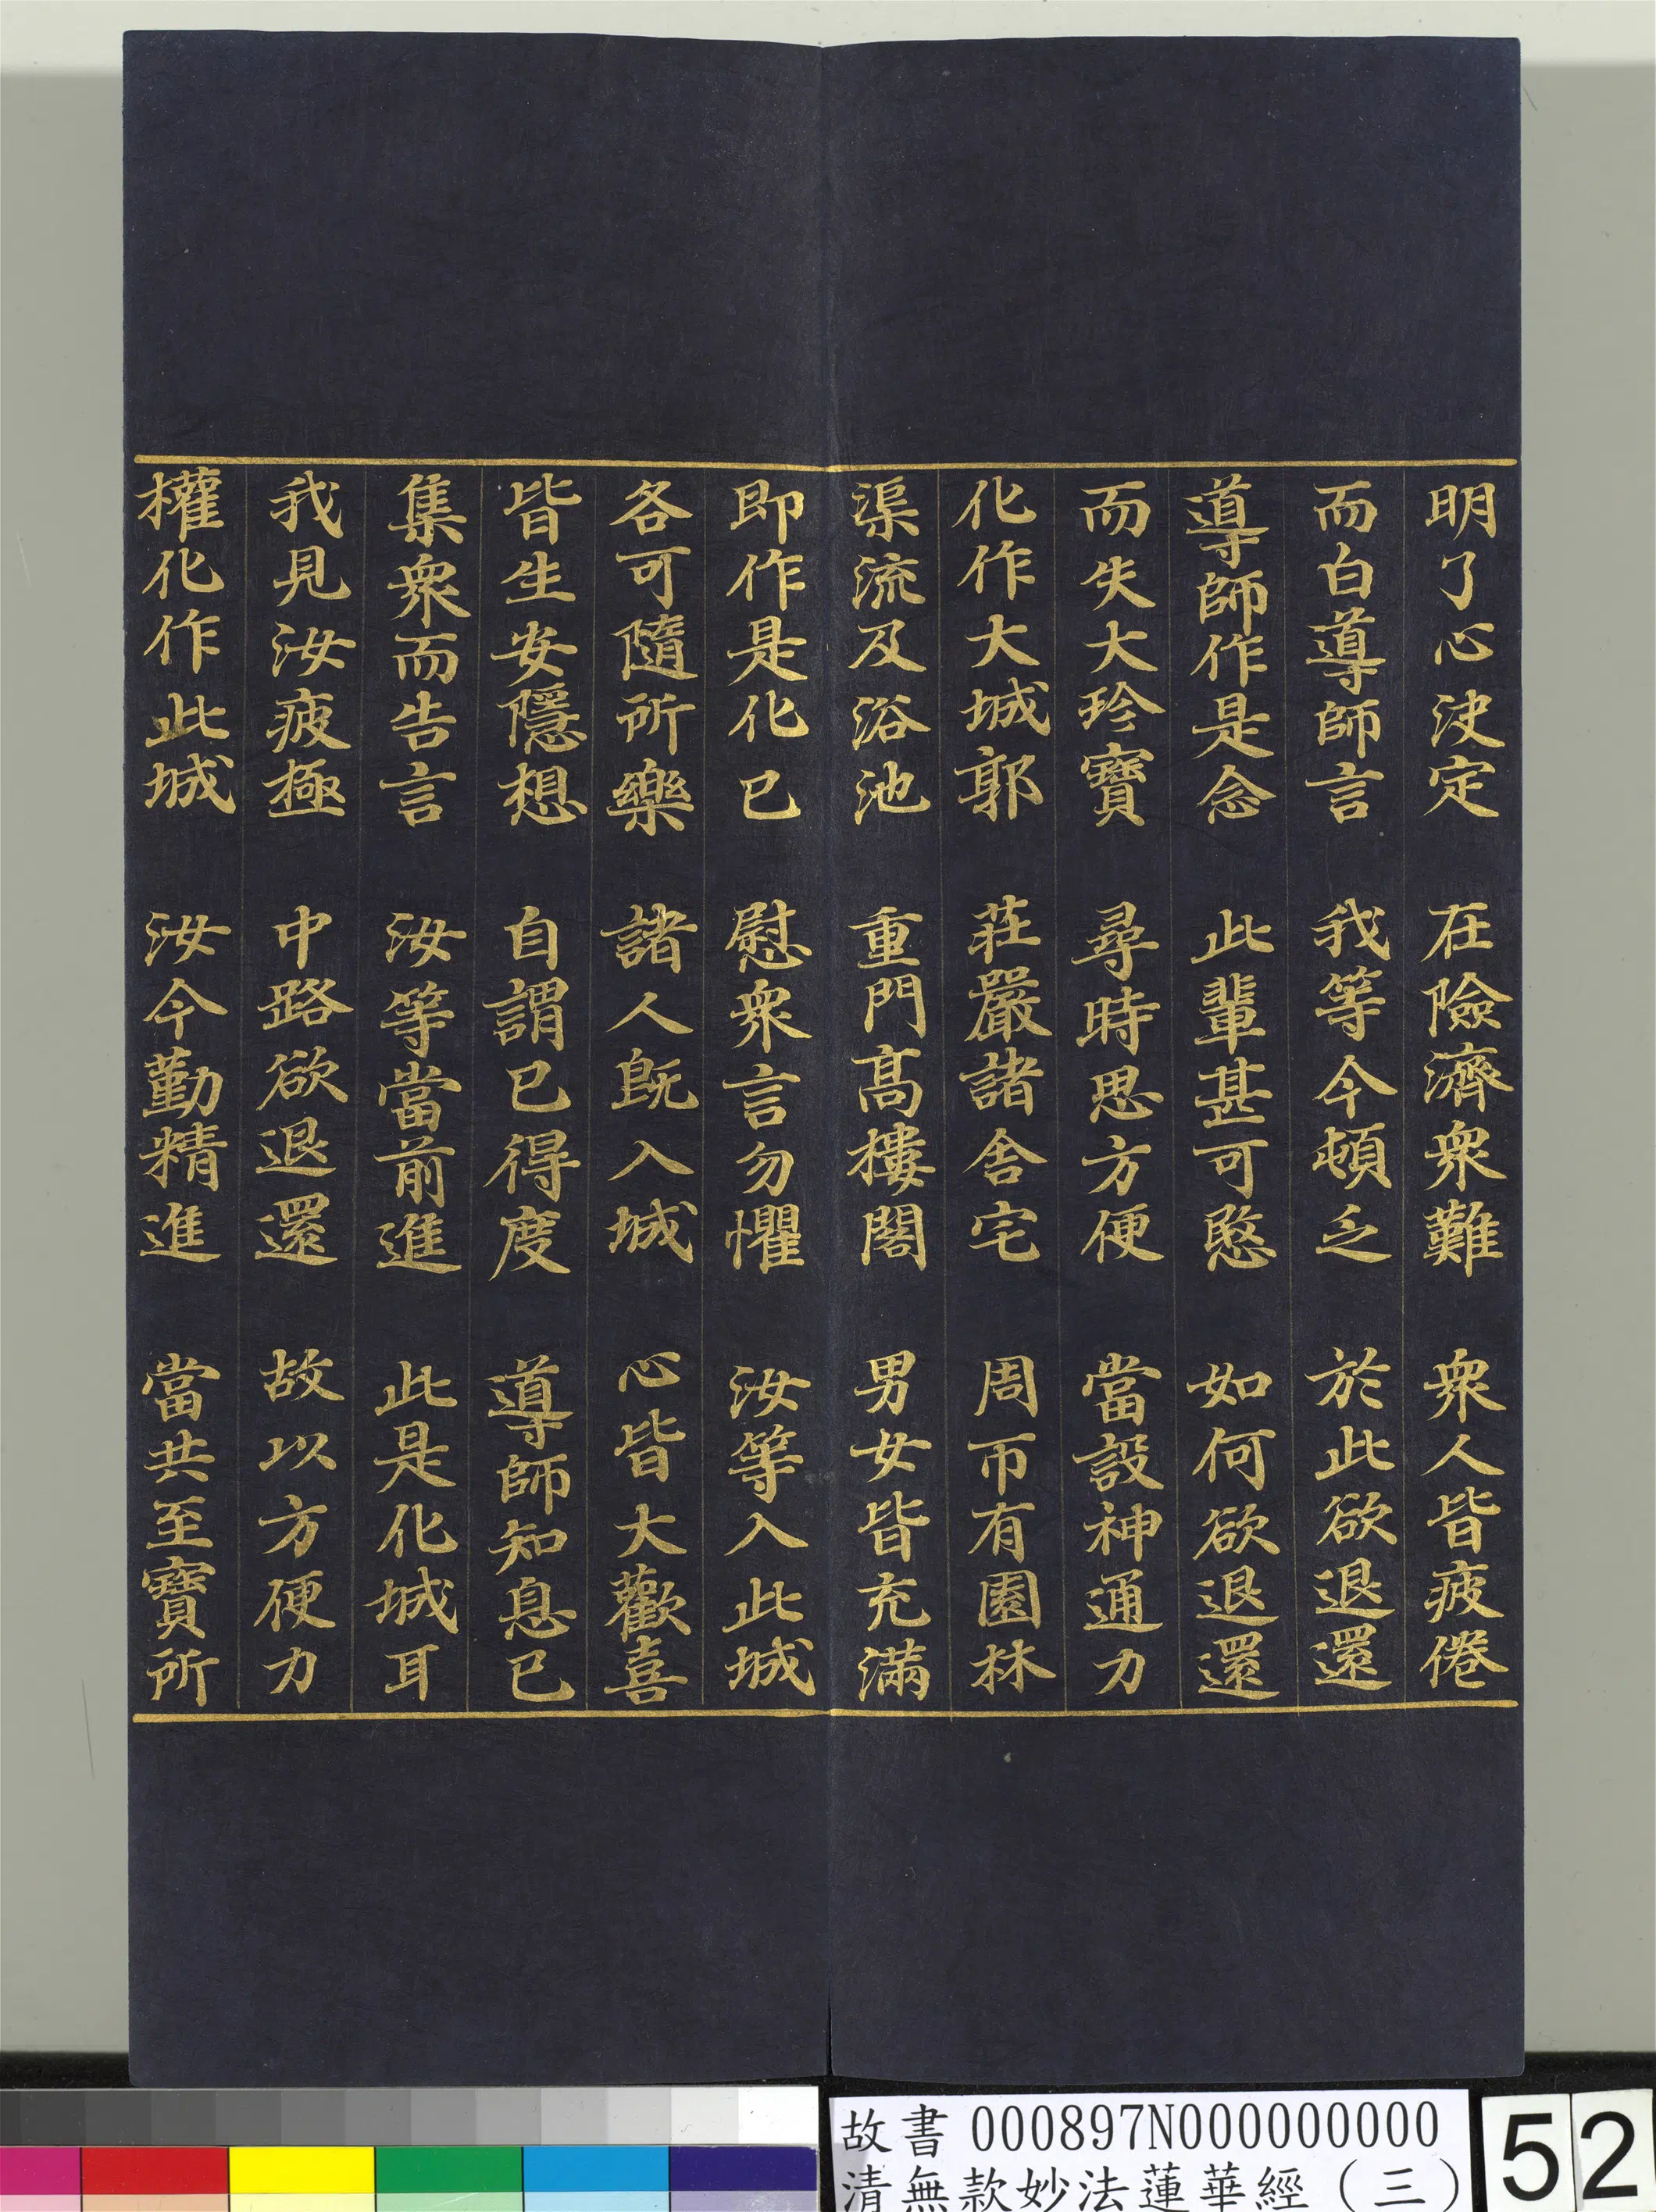 明了心決定　在險濟衆難　衆人皆疲倦
而白導師言　我等今頓乏　於此欲退還
導師作是念　此輩甚可愍　如何欲退還
而失大珍寶　尋時思方便　當設神通力
化作大城郭　莊嚴諸舍宅　周帀有園林
渠流及浴池　重門高樓閣　男女皆充滿
即作是化已　慰衆言勿懼　汝等入此城
各可隨所樂　諸人既入城　心皆大歡喜
皆生安隱想　自謂已得度　導師知息已
集衆而告言　汝等當前進　此是化城耳
我見汝疲極　中路欲退還　故以方便力
權化作此城　汝今勤精進　當共至寶所
故書 000897N000000000
清無款妙法蓮華經（三）
52